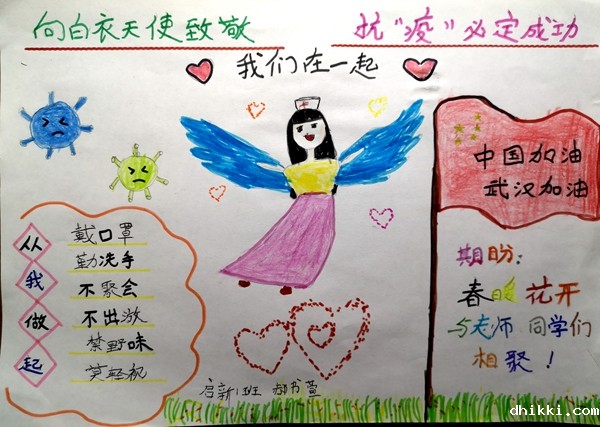 向白衣天使致敬
抗“疫”必定成功
我们在一起
中国加油
武汉加油
从我做起
戴口罩
勤洗手
不聚会
不出游
禁野味
莫轻视
期盼:
春暖花开
与老师同学们
相聚！
启新1班 郝书萱
dhikki.com